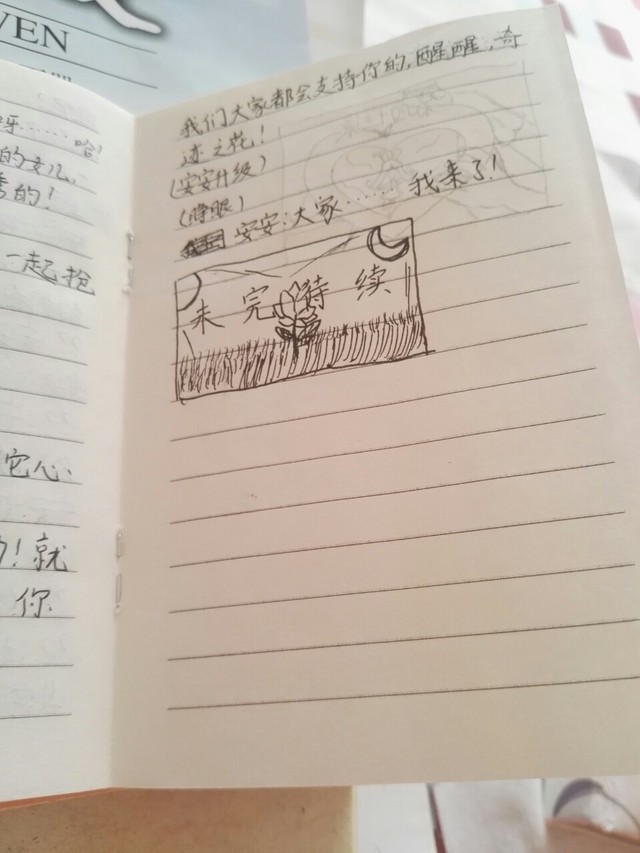 VEN
呀……哈!
的女儿,
秀的!
一起抢
它心、
!就
你
我们大家都会支持你的,醒醒,奇
迹之花!
(安安升级)
(睁眼)
安安:大家……我来了!
未完待续